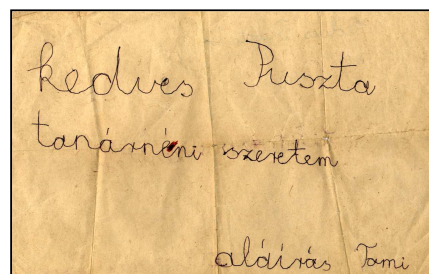 kedves Puszta
tanárnéni szeretem
aláírás Tomi